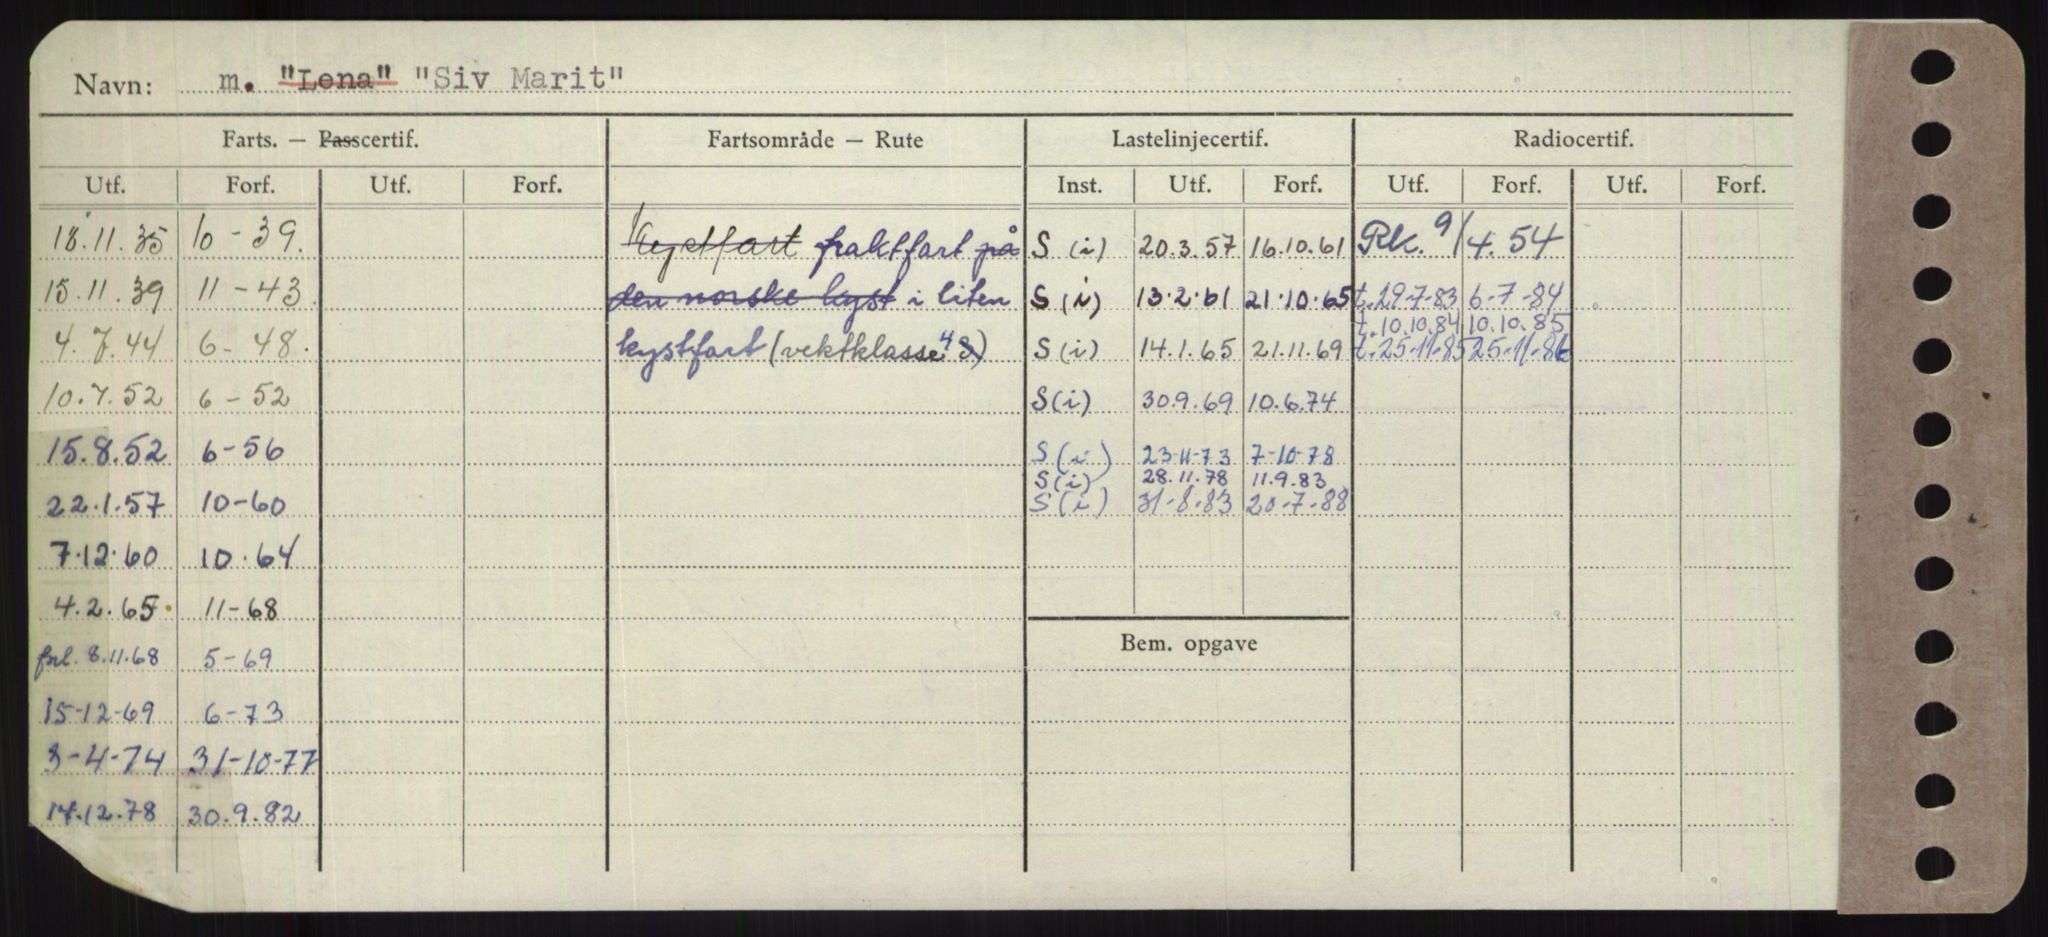 Navn: m. "Lena" "Siv Marit"
Farts. — Passcertif. Fartsområde — Rute Lastelinjecertif. Radiocertif.
Utf. Forf. Utf. Forf. Inst. Utf. Forf. Utf. Forf. Utf. Forf.
18.11.35 10-39. Kystfart fraktfart på S (i) 20.3.57 16.10.61 Rk. 9/4.54
15.11.39 11-43. den norske kyst i liten S (i) 13.2.61 21.10.65 t.29-7-83 6-7-84
t.10.10.84 10.10.85
4.7.44 6-48. kystfart (vektklasse 4 S) S (i) 14.1.65 21.11.69 t.25-11-85 25-11-86
10.7.52 6-52 S(i) 30.9.69 10.6.74
15.8.52 6-56 S(i) 23-11-73 7-10-78
S(i) 28.11.78 11.9.83
22.1.57 10-60 S(i) 31-8-83 20-7-88
7.12.60 10.64
4.2.65 11-68
Bem. opgave
forl. 8.11.68 5-69
15-12-69 6-73
3-4-74 31-10-77
14.12.78 30.9.82